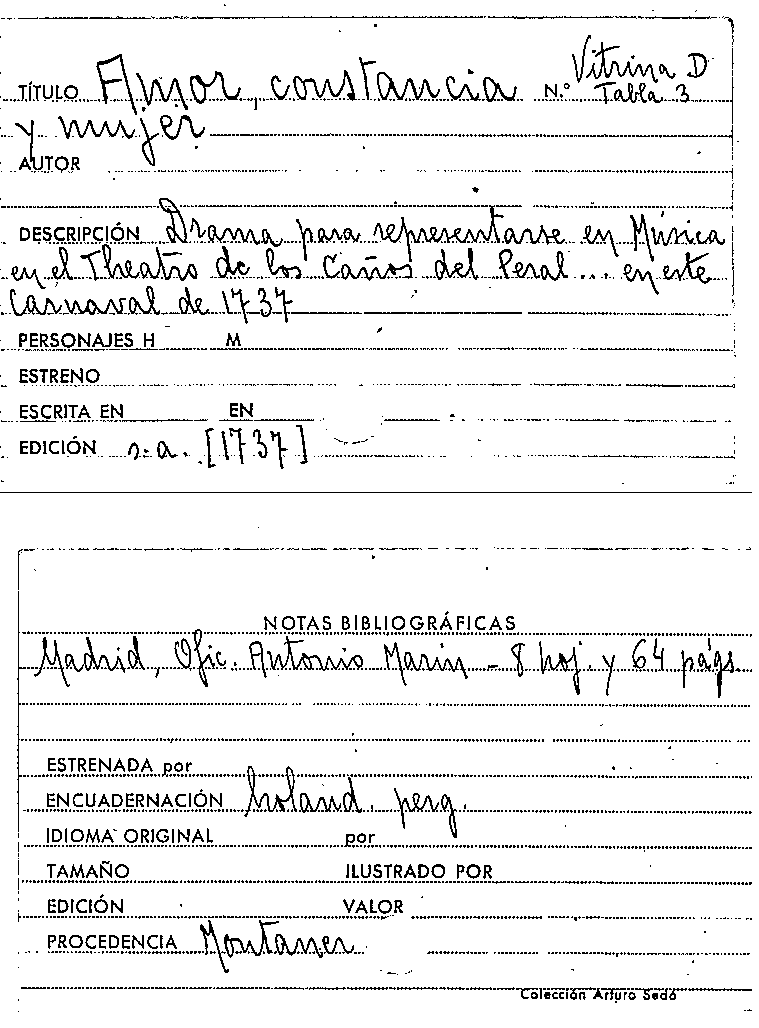 TÍTULO Amor, constancia N.º Vitrina D Tabla 3
y mujer
AUTOR
DESCRIPCIÓN Drama para representarse en Música
en el Theatro de los Caños del Peral... en este
Carnaval de 1737
PERSONAJES H M
ESTRENO
ESCRITA EN EN
EDICIÓN s.a. [1737]
NOTAS BIBLIOGRÁFICAS
Madrid, Ofic. Antonio Marin - 8 hoj. y 64 págs.
ESTRENADA por
ENCUADERNACIÓN holand. perg.
IDIOMA ORIGINAL por
TAMAÑO ILUSTRADO POR
EDICIÓN VALOR
PROCEDENCIA Montaner
Colección Arturo Sedó